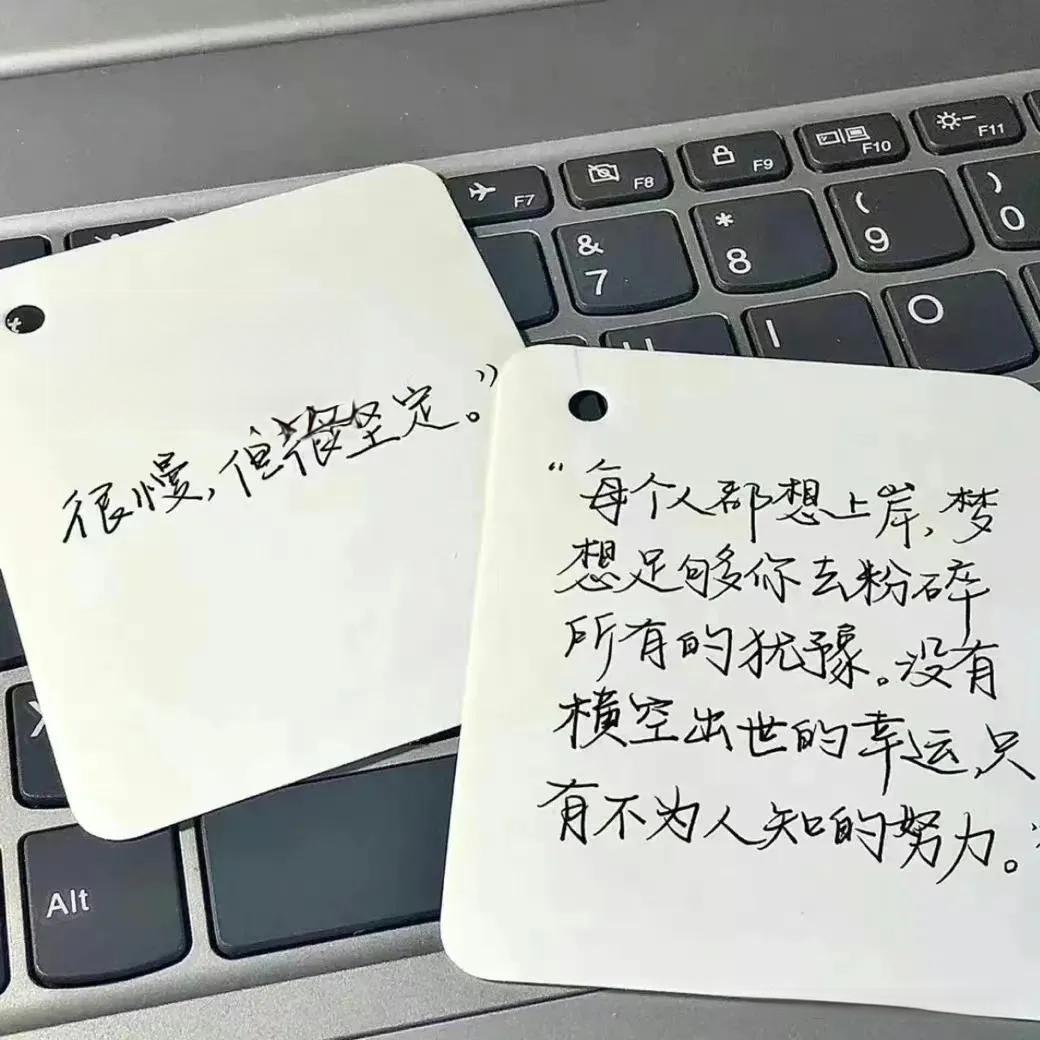 F7
F8
F9
F10
F11
&
7
*
8
(
9
)
0
U
I
O
X
Alt
很慢，但很坚定。”
“每个人都想上岸，梦
想足够你去粉碎
所有的犹豫。没有
横空出世的幸运，只
有不为人知的努力。”